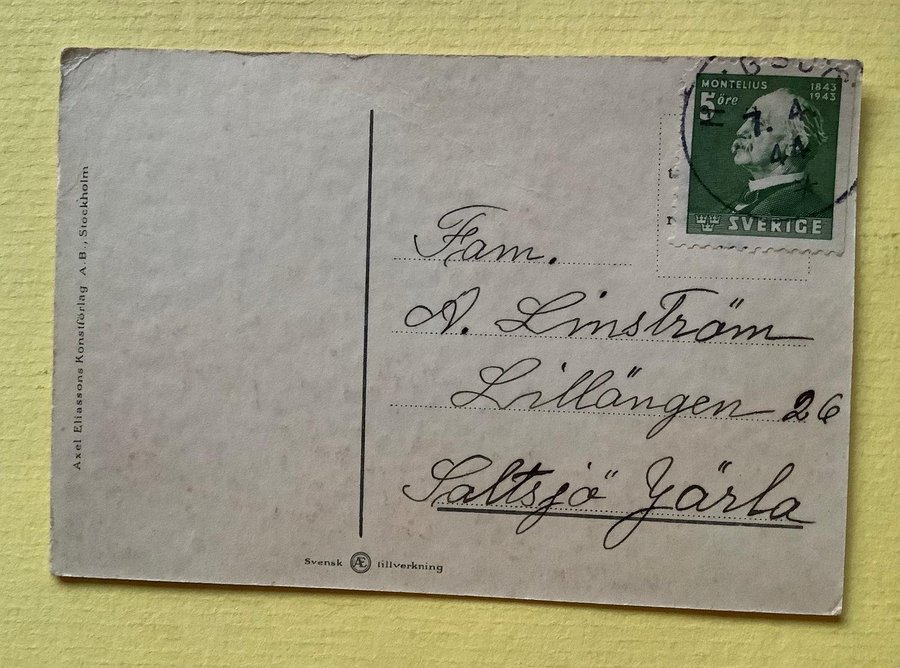 MONTELIUS 1843
1943
5 öre
7. 4
44
SVERIGE
Fam.
A. Linström
Lillängen 26
Saltsjö Järla
Axel Eliassons Konstförlag A. B., Stockholm
Svensk Æ tillverkning